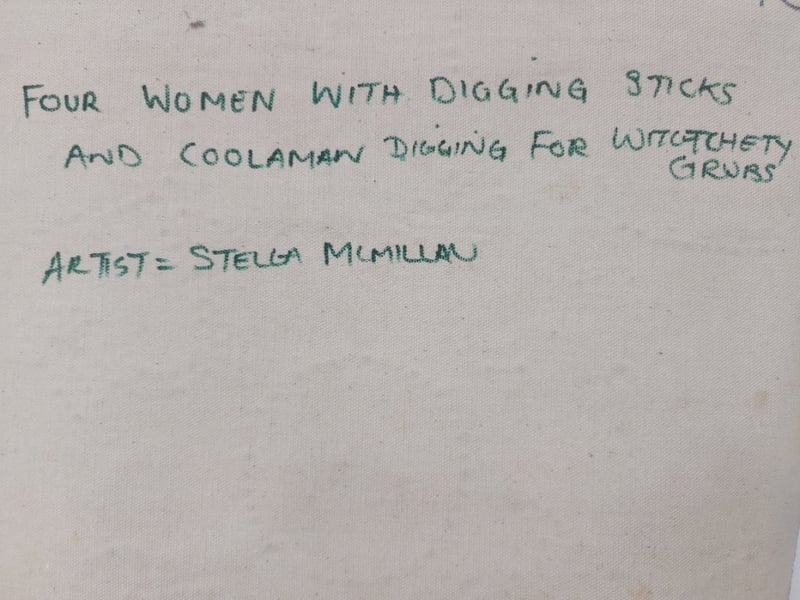 FOUR WOMEN WITH DIGGING STICKS
AND COOLAMAN DIGGING FOR WITCTCHETY
GRUBS
ARTIST = STELLA MCMILLAN